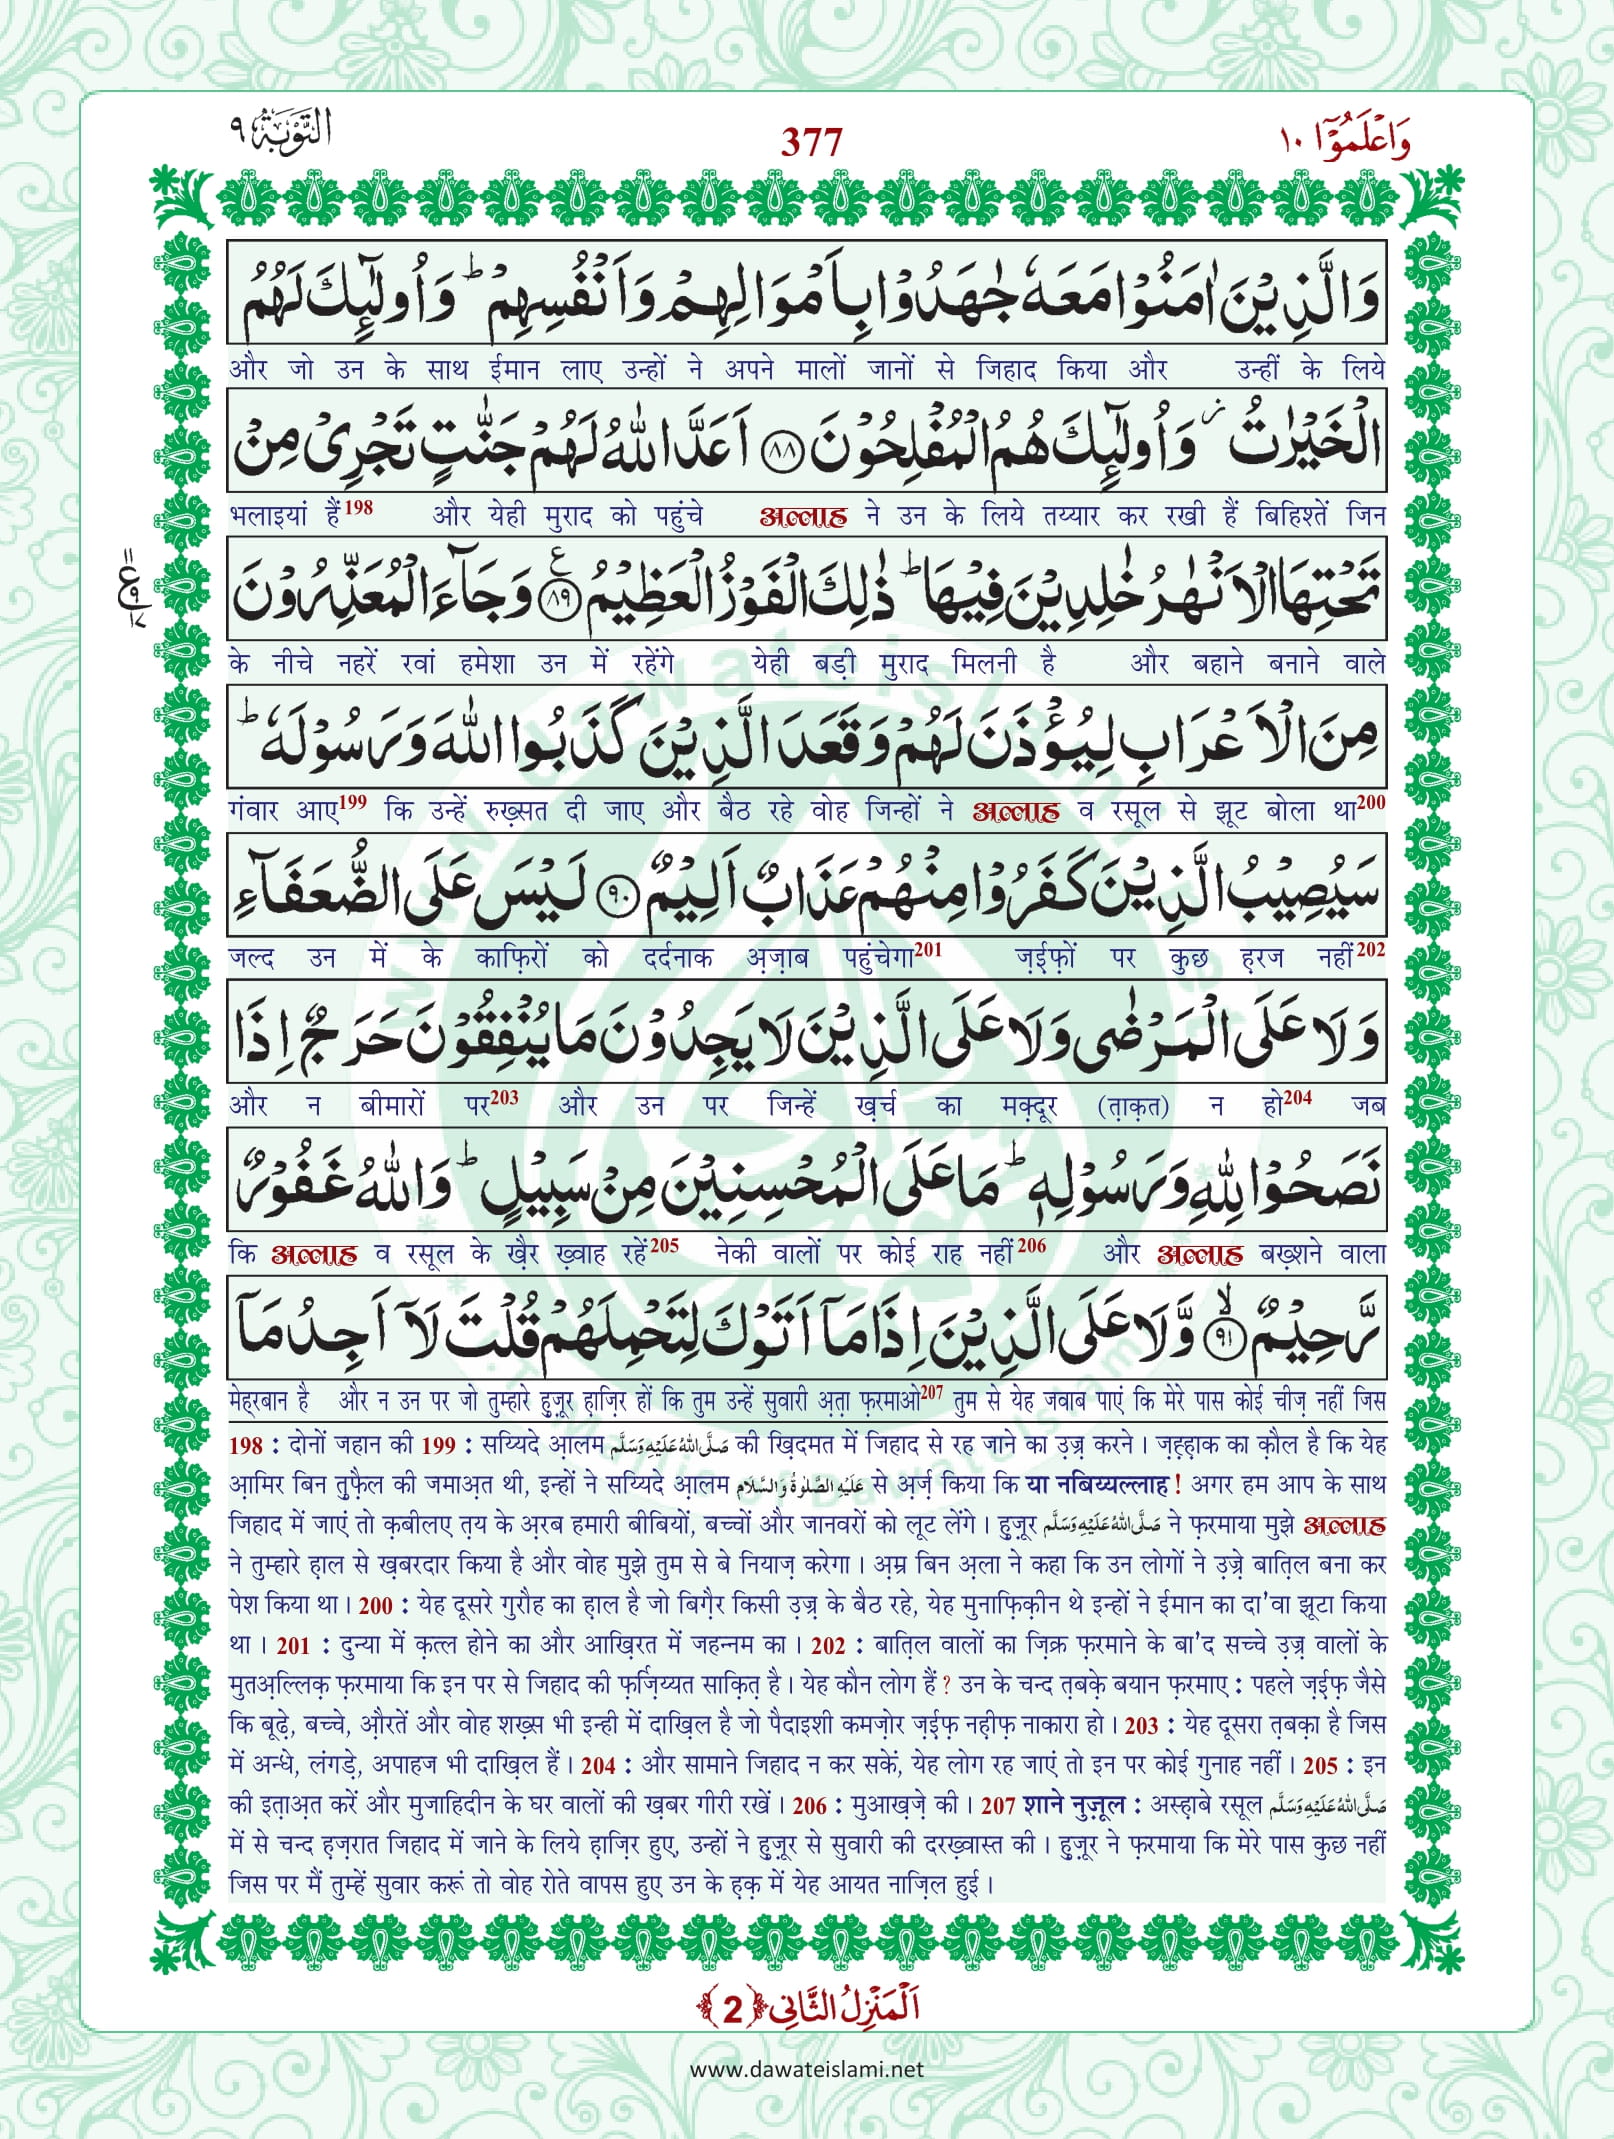 التَّوۡبَۃ ٩
377
وَاعۡلَمُوۡۤا ١٠
وَالَّذِیۡنَ اٰمَنُوۡا مَعَہٗ جٰہَدُوۡا بِاَمۡوَالِہِمۡ وَاَنۡفُسِہِمۡ ؕ وَاُولٰٓئِکَ لَہُمُ
और जो उन के साथ ईमान लाए उन्हों ने अपने मालों जानों से जिहाद किया और उन्हीं के लिये
الۡخَیۡرٰتُ ۫ وَاُولٰٓئِکَ ہُمُ الۡمُفۡلِحُوۡنَ ﴿٨٨﴾ اَعَدَّ اللّٰہُ لَہُمۡ جَنّٰتٍ تَجۡرِیۡ مِنۡ
भलाइयां हैं198 और येही मुराद को पहुंचे अल्लाह ने उन के लिये तय्यार कर रखी हैं बिहिश्तें जिन
تَحۡتِہَا الۡاَنۡہٰرُ خٰلِدِیۡنَ فِیۡہَا ؕ ذٰلِکَ الۡفَوۡزُ الۡعَظِیۡمُ ﴿٨٩﴾ ع وَجَآءَ الۡمُعَذِّرُوۡنَ
के नीचे नहरें रवां हमेशा उन में रहेंगे येही बड़ी मुराद मिलनी है और बहाने बनाने वाले
مِنَ الۡاَعۡرَابِ لِیُؤۡذَنَ لَہُمۡ وَقَعَدَ الَّذِیۡنَ کَذَبُوا اللّٰہَ وَرَسُوۡلَہٗ ؕ
गंवार आए199 कि उन्हें रुख़्सत दी जाए और बैठ रहे वोह जिन्हों ने अल्लाह व रसूल से झूट बोला था200
سَیُصِیۡبُ الَّذِیۡنَ کَفَرُوۡا مِنۡہُمۡ عَذَابٌ اَلِیۡمٌ ﴿٩٠﴾ لَیۡسَ عَلَی الضُّعَفَآءِ
जल्द उन में के काफ़िरों को दर्दनाक अ़ज़ाब पहुंचेगा201 ज़ईफ़ों पर कुछ ह़रज नहीं202
وَلَا عَلَی الۡمَرۡضٰی وَلَا عَلَی الَّذِیۡنَ لَا یَجِدُوۡنَ مَا یُنۡفِقُوۡنَ حَرَجٌ اِذَا
और न बीमारों पर203 और उन पर जिन्हें ख़र्च का मक़्दूर (त़ाक़त) न हो204 जब
نَصَحُوۡا لِلّٰہِ وَرَسُوۡلِہٖ ؕ مَا عَلَی الۡمُحۡسِنِیۡنَ مِنۡ سَبِیۡلٍ ؕ وَاللّٰہُ غَفُوۡرٌ
कि अल्लाह व रसूल के ख़ैर ख़्वाह रहें205 नेकी वालों पर कोई राह नहीं206 और अल्लाह बख़्शने वाला
رَّحِیۡمٌ ﴿ۙ٩١﴾ وَّلَا عَلَی الَّذِیۡنَ اِذَا مَاۤ اَتَوۡکَ لِتَحۡمِلَہُمۡ قُلۡتَ لَاۤ اَجِدُ مَاۤ
मेह्‌रबान है और न उन पर जो तुम्हारे हुज़ूर ह़ाज़िर हों कि तुम उन्हें सुवारी अ़त़ा फ़रमाओ207 तुम से येह जवाब पाएं कि मेरे पास कोई चीज़ नहीं जिस
198 : दोनों जहान की 199 : सय्यिदे आ़लम صَلَّی اللّٰہُ عَلَیْہِ وَسَلَّم की ख़िदमत में जिहाद से रह जाने का उ़ज़्र करने । ज़ह़्ह़ाक का क़ौल है कि येह
आ़मिर बिन तु़फ़ैल की जमाअ़त थी, इन्हों ने सय्यिदे आ़लम عَلَیْہِ الصَّلٰوۃُ وَالسَّلَام से अ़र्ज़ किया कि या नबिय्यल्लाह ! अगर हम आप के साथ
जिहाद में जाएं तो क़बीलए त़य के अ़रब हमारी बीबियों, बच्चों और जानवरों को लूट लेंगे । हु़ज़ूर صَلَّی اللّٰہُ عَلَیْہِ وَسَلَّم ने फ़रमाया मुझे अल्लाह
ने तुम्हारे ह़ाल से ख़बरदार किया है और वोह मुझे तुम से बे नियाज़ करेगा । अ़म्र बिन अ़ला ने कहा कि उन लोगों ने उ़ज़्रे बात़िल बना कर
पेश किया था । 200 : येह दूसरे गुरौह का ह़ाल है जो बिग़ैर किसी उ़ज़्र के बैठ रहे, येह मुनाफ़िक़ीन थे इन्हों ने ईमान का दा'वा झूटा किया
था । 201 : दुन्या में क़त्ल होने का और आख़िरत में जहन्नम का । 202 : बात़िल वालों का ज़िक्र फ़रमाने के बा'द सच्चे उ़ज़्र वालों के
मुतअ़ल्लिक़ फ़रमाया कि इन पर से जिहाद की फ़र्ज़िय्यत साक़ित़ है । येह कौन लोग हैं ? उन के चन्द त़बक़े बयान फ़रमाए : पहले ज़ई़फ़ जैसे
कि बूढ़े, बच्चे, औ़रतें और वोह शख़्स भी इन्ही में दाख़िल है जो पैदाइशी कमज़ोर ज़ई़फ़ नह़ीफ़ नाकारा हो । 203 : येह दूसरा त़बक़ा है जिस
में अन्धे, लंगड़े, अपाहज भी दाख़िल हैं । 204 : और सामाने जिहाद न कर सकें, येह लोग रह जाएं तो इन पर कोई गुनाह नहीं । 205 : इन
की इत़ाअ़त करें और मुजाहिदीन के घर वालों की ख़बर गीरी रखें । 206 : मुआख़ज़े की । 207 शाने नुज़ूल : अस्ह़ाबे रसूल صَلَّی اللّٰہُ عَلَیْہِ وَسَلَّم
में से चन्द ह़ज़रात जिहाद में जाने के लिये ह़ाज़िर हुए, उन्हों ने हु़ज़ूर से सुवारी की दरख़्वास्त की । हु़ज़ूर ने फ़रमाया कि मेरे पास कुछ नहीं
जिस पर मैं तुम्हें सुवार करूं तो वोह रोते वापस हुए उन के ह़क़ में येह आयत नाज़िल हुई ।
اَلۡمَنۡزِلُ الثَّانِی ﴿2﴾
www.dawateislami.net